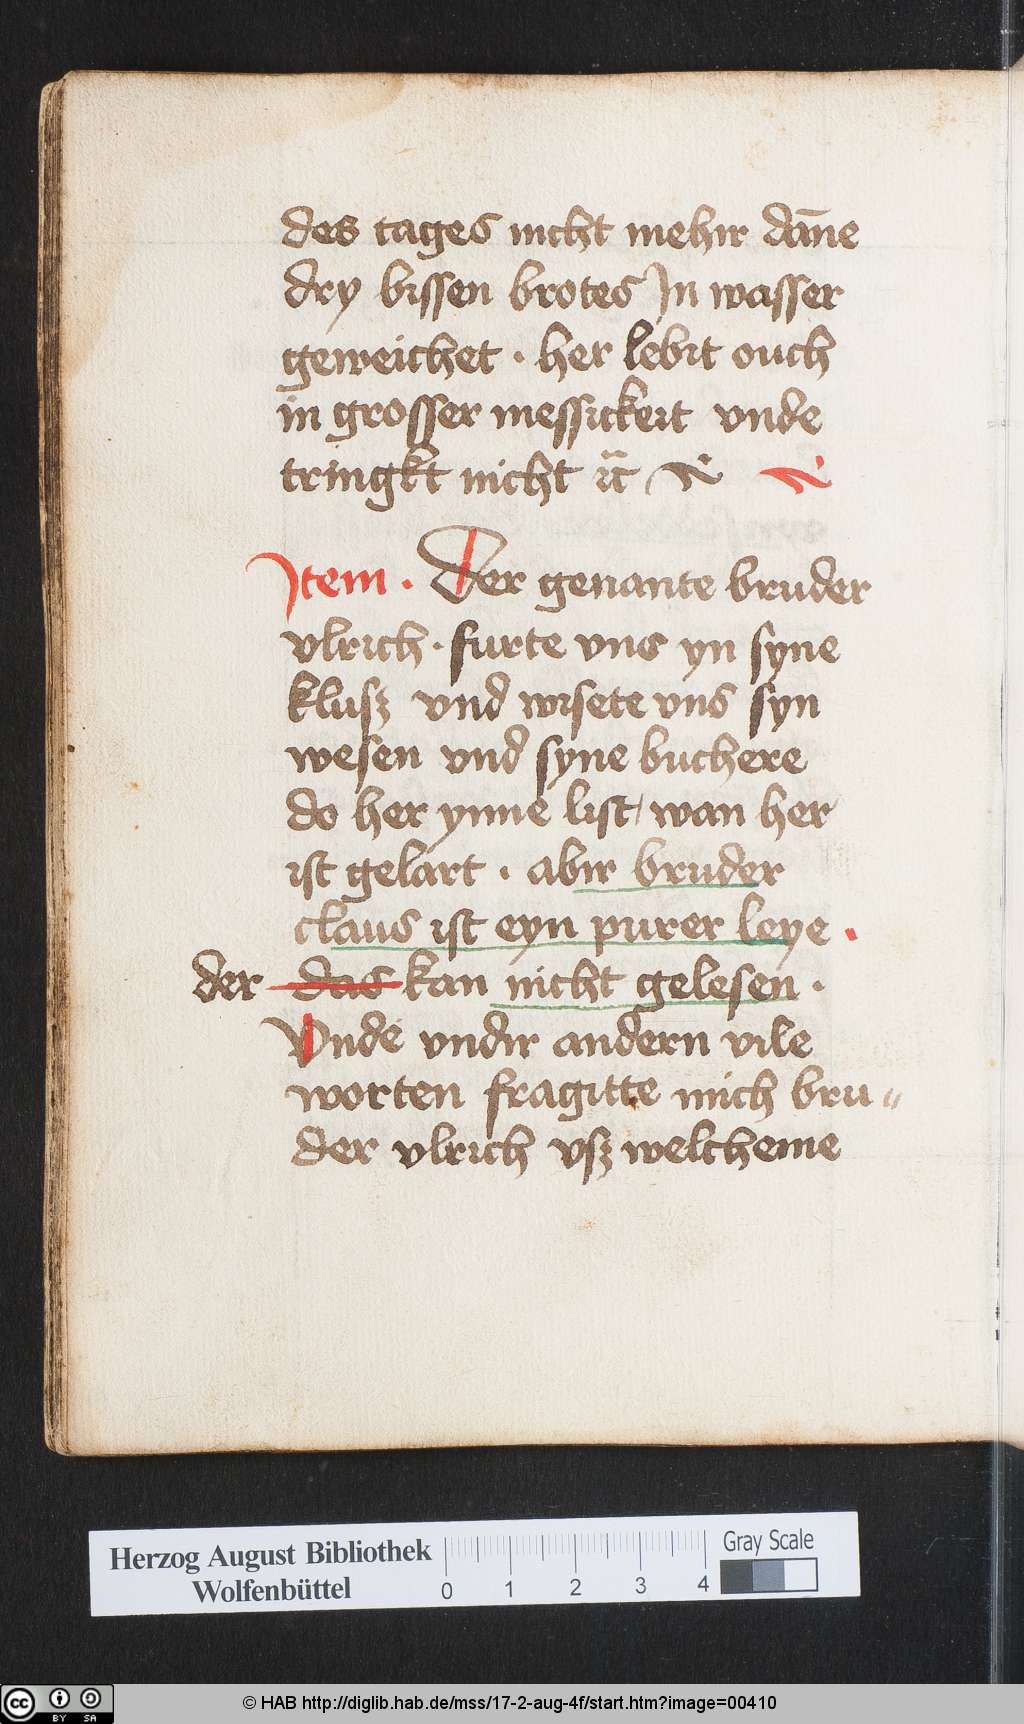 des tages nicht mehir dāne
dry bissen brotes Jn wasser
geweichet · her lebit ouch
in grosser messickeit vnde
tringkt nicht
Jtem · Der genante bruder
vlrich · furte vns yn syne
klusz vnd wisete vns syn
wesen vnd syne buchere
do her ynne list / wan her
ist gelart · abir bruder
claus ist eyn purer leye ·
der das kan nicht gelesen ·
Vnde vndir andern vile
worten fragitte mich bru〃
der vlrich vsz welcheme
Herzog August Bibliothek
Wolfenbüttel
0 1 2 3 4
Gray Scale
cc BY SA
© HAB http://diglib.hab.de/mss/17-2-aug-4f/start.htm?image=00410